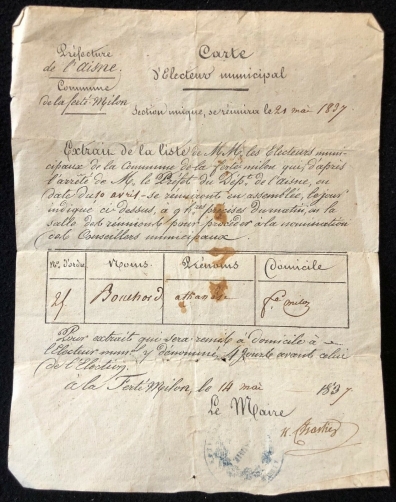 Préfecture
de l'aisne.
Commune
de la ferté Milon
Carte
d'Electeur municipal
Section unique, se réunira le 21 mai 1837
Extrait de la liste de M.M. les Electeurs muni-
cipaux de la Commune de la ferté milon qui, d'après
l'arrêté de M. le Préfet du Dép. de l'aisne, en
date du 10 avril - se réuniront en assemblée, le jour
indiqué ci dessus, à 9 h. précises du matin, en la
salle des réunions pour procéder à la nomination
des Conseillers municipaux.
No. d'ordre Noms Prénoms Domicile
25 Bouchard
Pour extrait qui sera remis à domicile à
l'Electeur mun. y dénommé, 4 jours avant celui
de l'Election.
à la Ferté Milon, le 14 mai 1837
Le Maire